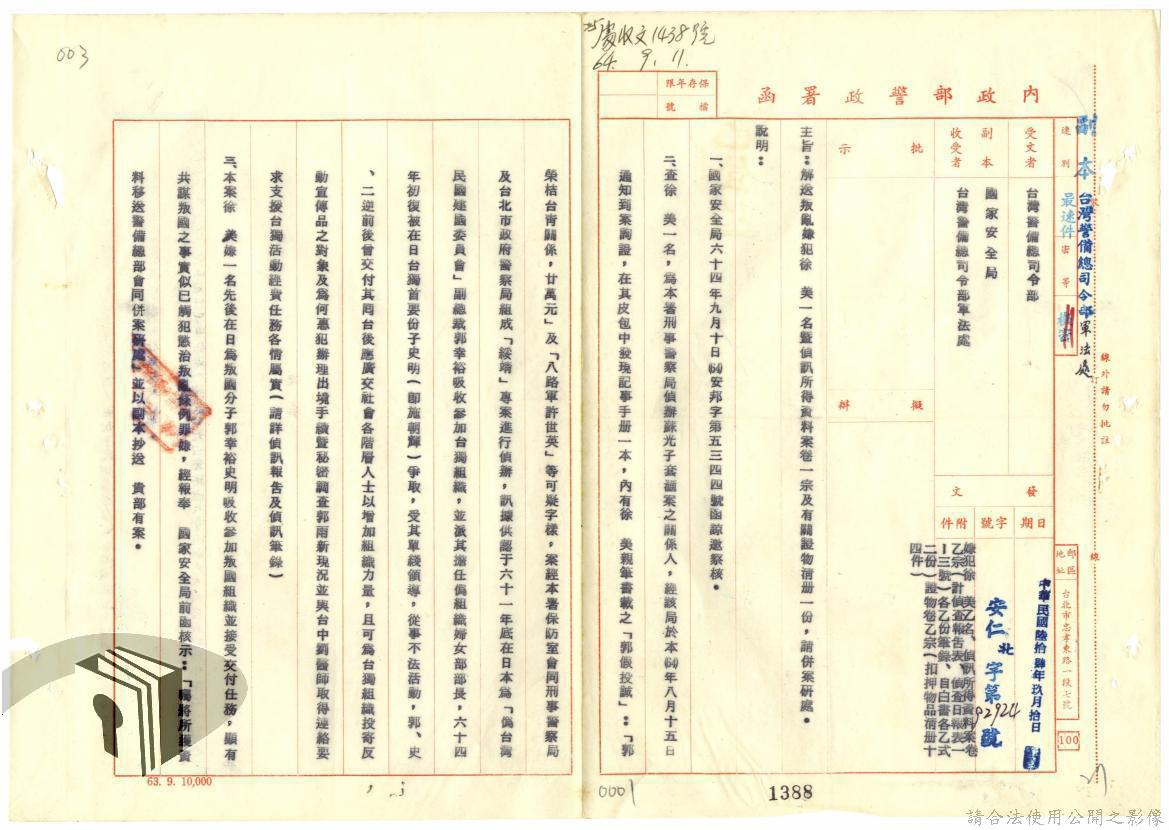 003
處收文1438號
64. 9. 11.
副本
台灣警備總司令部軍法處
保存年限
檔號
內政部警政署函
速別
最速件
密等
線外請勿批註
線
受文者
台灣警備總司令部
副本
收受者
國家安全局
台灣警備總司令部軍法處
批示
擬辦
發文
日期
中華民國陸拾肆年玖月拾日
字號
安仁北字第92924號
附件
嫌犯徐 美乙名、偵訊所得資料案卷
乙宗(計偵查報告表、偵查日報表一
—三號)各乙份筆錄、自白書各乙式
二份)證物卷乙宗(扣押物品清册十
四件)
郵區
地址
台北市忠孝東路一段七號
100
主旨:解送叛亂嫌犯徐 美一名暨偵訊所得資料案卷一宗及有關證物清册一份,請併案研處。
說明:
一、國家安全局六十四年九月十日64安邦字第五三四四號函諒邀察核。
二、查徐 美一名,爲本署刑事警察局偵辦蘇光子套滙案之關係人,經該局於本64年八月十五日
通知到案詢證,在其皮包中發現記事手册一本,內有徐 美親筆書載之「郭假投誠」:「郭
榮桔台青關係,廿萬元」及「八路軍許世英」等可疑字樣,案經本署保防室會同刑事警察局
及台北市政府警察局組成「綏靖」專案進行偵辦,訊據供認于六十一年底在日本爲「僞台灣
民國建國委員會」副總裁郭幸裕吸收參加台獨組織,並派其擔任僞組織婦女部部長,六十四
年初復被在日台獨首要份子史明(即施朝輝)爭取,受其單綫領導,從事不法活動,郭、史
、二逆前後曾交付其囘台後應廣交社會各階層人士以增加組織力量,且可爲台獨組織投寄反
動宣傳品之對象及爲何憑犯辦理出境手續暨秘密調查郭雨新現況並與台中劉醫師取得連絡要
求支援台獨活動經費任務各情屬實(請詳偵訊報告及偵訊筆錄)
三、本案徐 美嫌一名先後在日爲叛國分子郭幸裕史明吸收參加叛國組織並接受交付任務,顯有
共謀叛國之事實似已觸犯懲治叛亂條例罪嫌,經報奉 國家安全局前函核示:「囑將所獲資
料移送警備總部會同併案研處」並以副本抄送 貴部有案。
63. 9. 10,000
0001
1388
請合法使用公開之影像